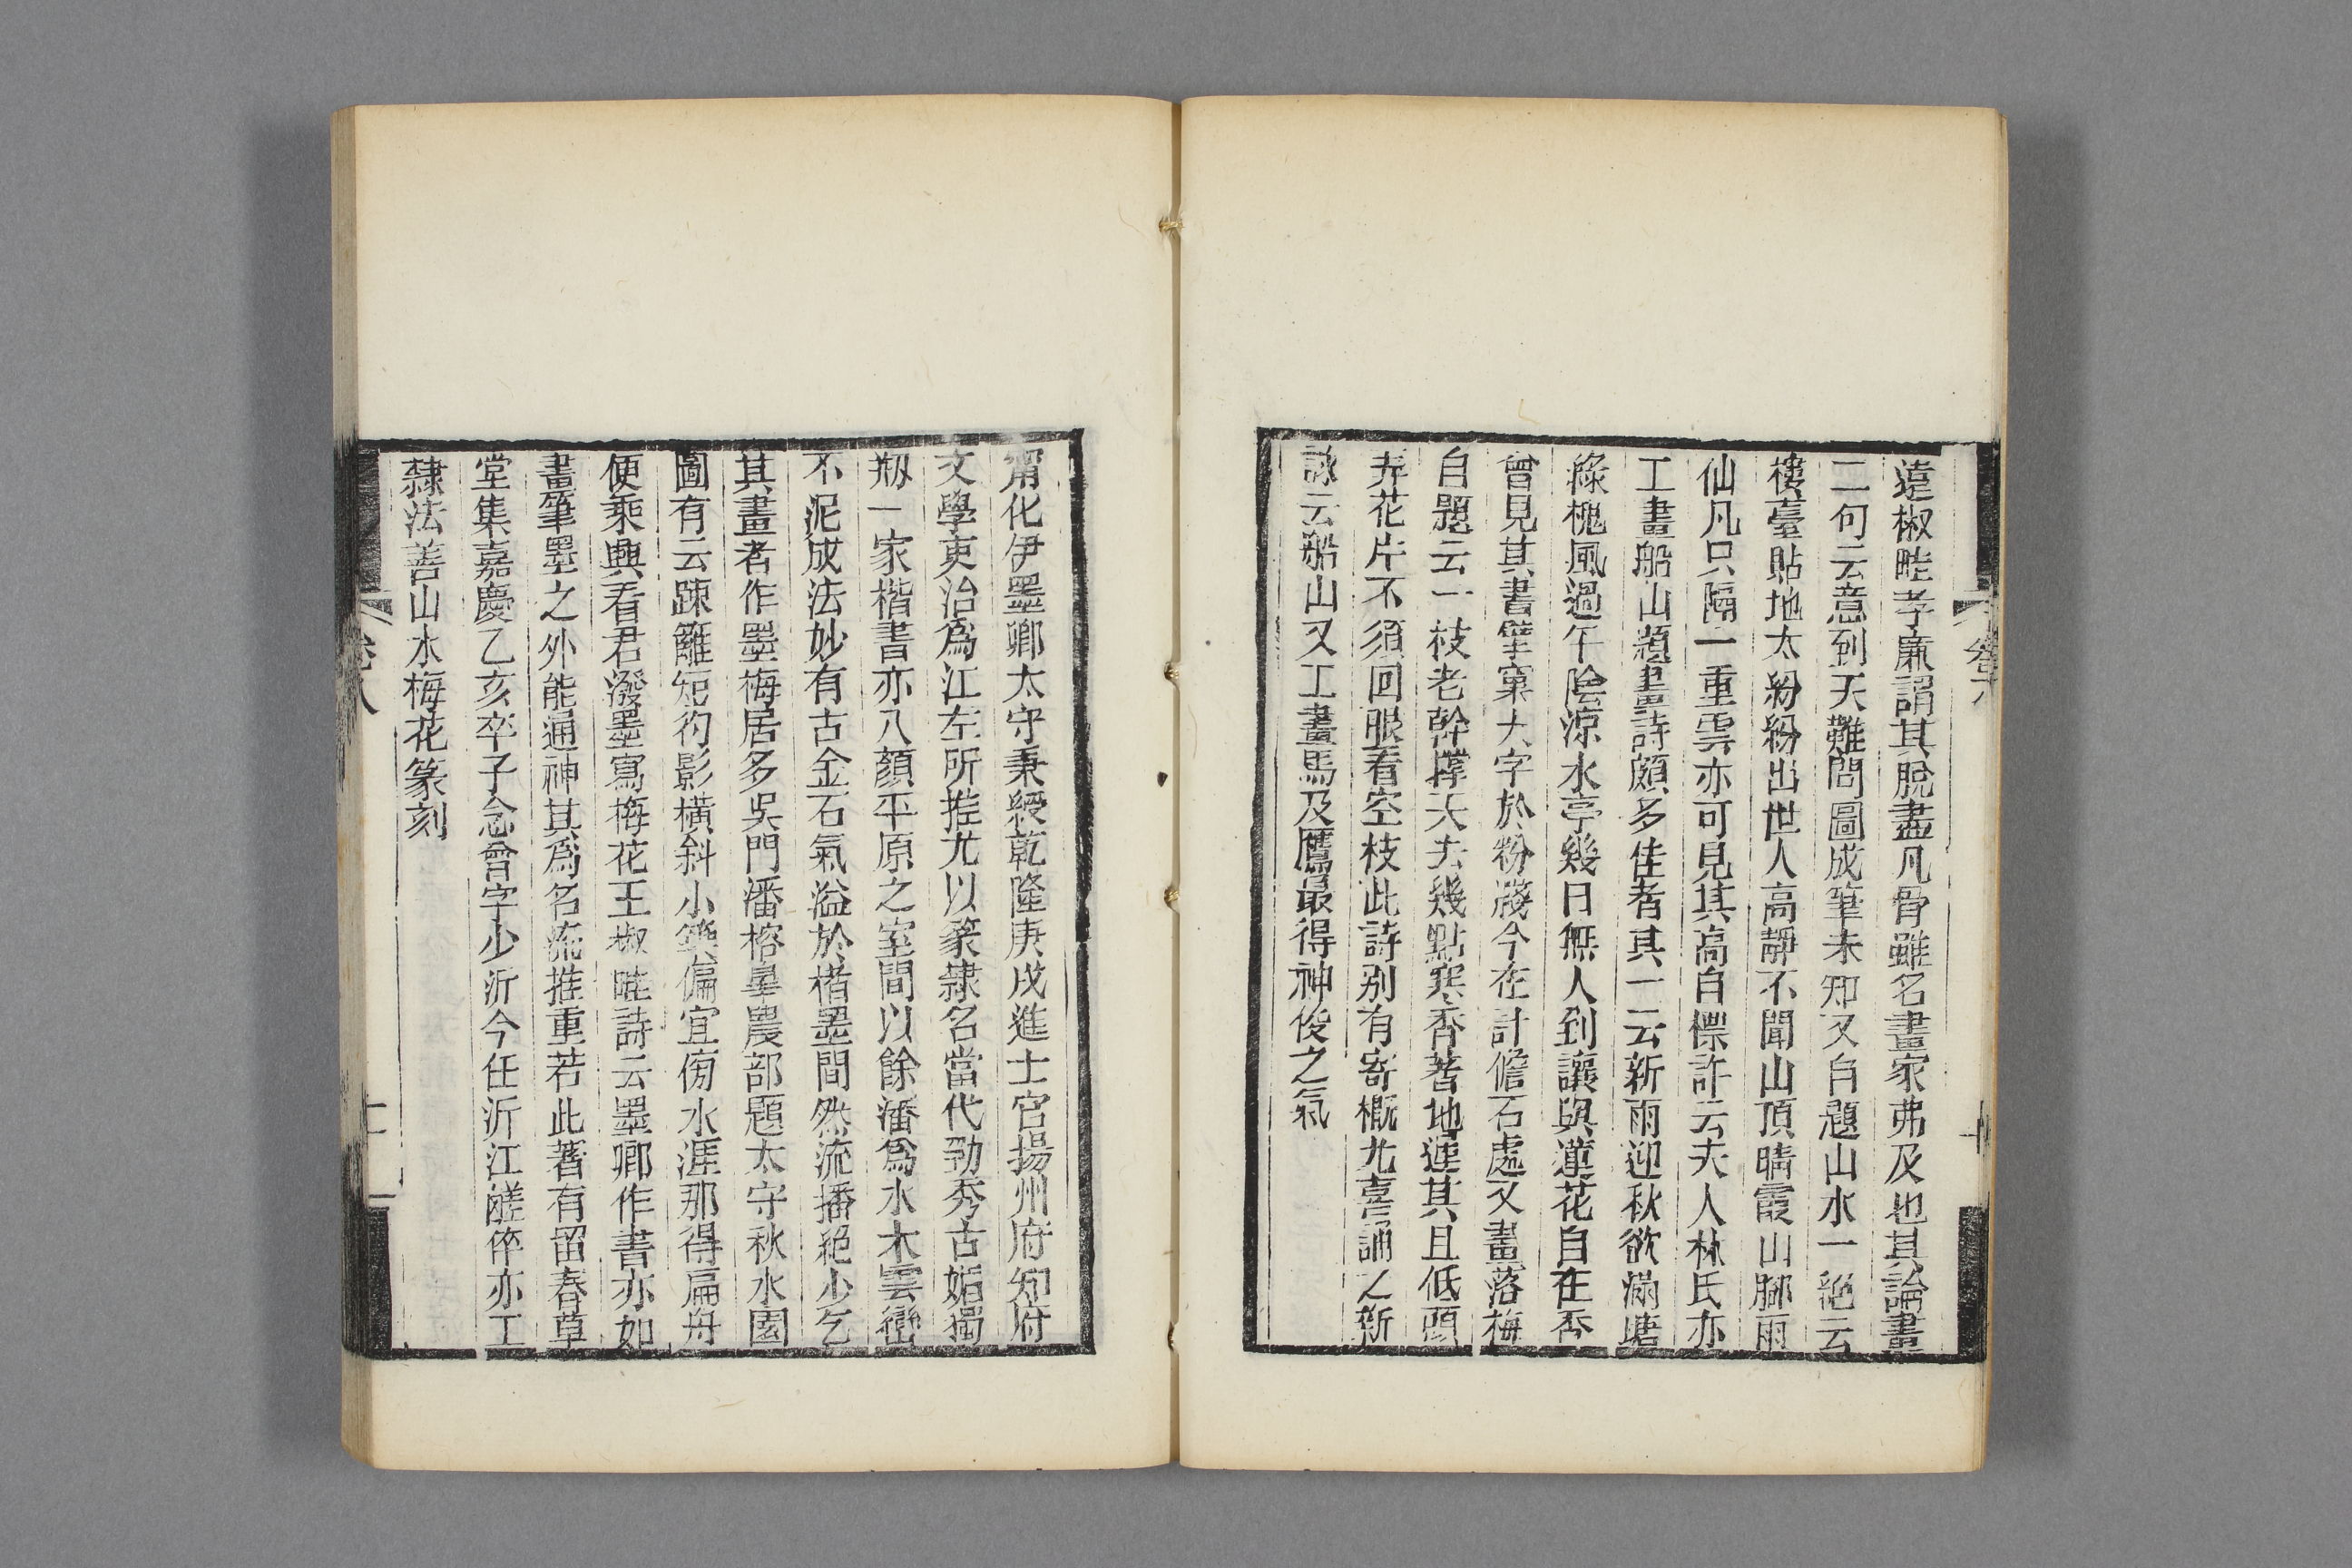 遠椒畦孝廉謂其脫盡凡骨雖名畫家弗及也其論畫
二句云意到天難問圖成筆未知又自題山水一絕云
樓臺貼地太紛紛出世人高靜不聞山頂晴霞山腳雨
仙凡只隔一重雲亦可見其高自標許云夫人林氏亦
工畫船山題畫詩頗多佳者其一云新雨迎秋欲滿塘
綠槐風過午陰涼水亭幾日無人到讓與蓮花自在香
曾見其書擘窠大字於粉牋今在計儋石處又畫落梅
自題云一枝老幹撐天去幾點寒香著地連其且低頭
弄花片不須回眼看空枝此詩别有寄概尤喜誦之新
詠云船山又工畫馬及鷹最得神俊之氣
甯化伊墨卿太守秉綬乾隆庚戌進士官揚州府知府
文學吏治爲江左所推尤以篆隸名當代勁秀古媚獨
剏一家楷書亦入顏平原之室間以餘瀋爲水木雲巒
不泥成法妙有古金石氣溢於楮墨間然流播絕少乞
其畫者作墨梅居多吳門潘榕臯農部題太守秋水園
圖有云疎籬短彴影橫斜小築偏宜傍水涯那得扁舟
便乘興看君潑墨寫梅花王椒畦詩云墨卿作書亦如
畫筆墨之外能通神其爲名流推重若此著有畱春草
堂集嘉慶乙亥卒子念曾字少沂今任沂江鹺倅亦工
隸法善山水梅花篆刻
卷八